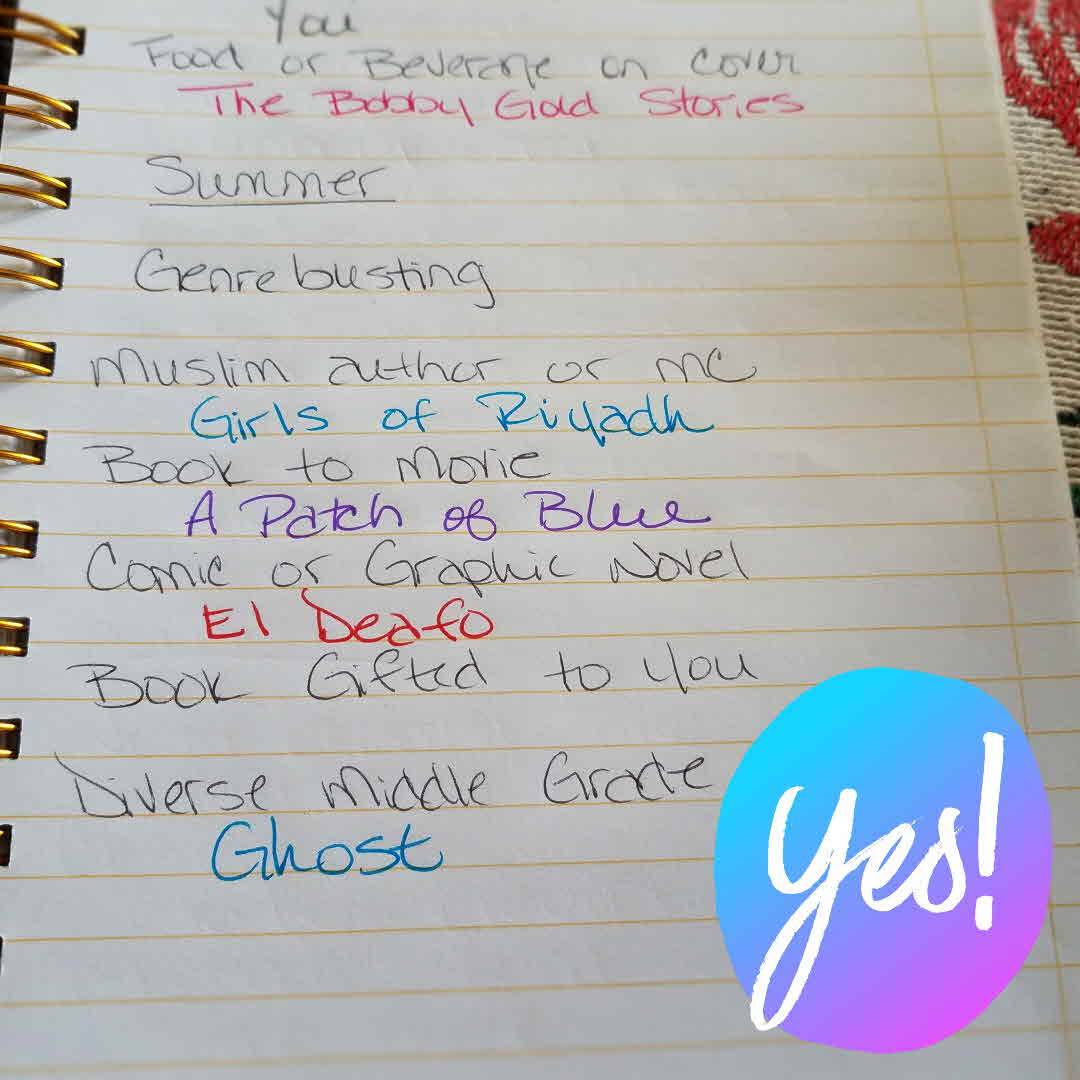 You
Food or Beverage on cover
The Bobby Gold Stories
Summer
Genre busting
Muslim author or mc
Girls of Riyadh
Book to Movie
A Patch of Blue
Comic or Graphic Novel
El Deafo
Book Gifted to you
Diverse Middle Grade
Ghost
yes!